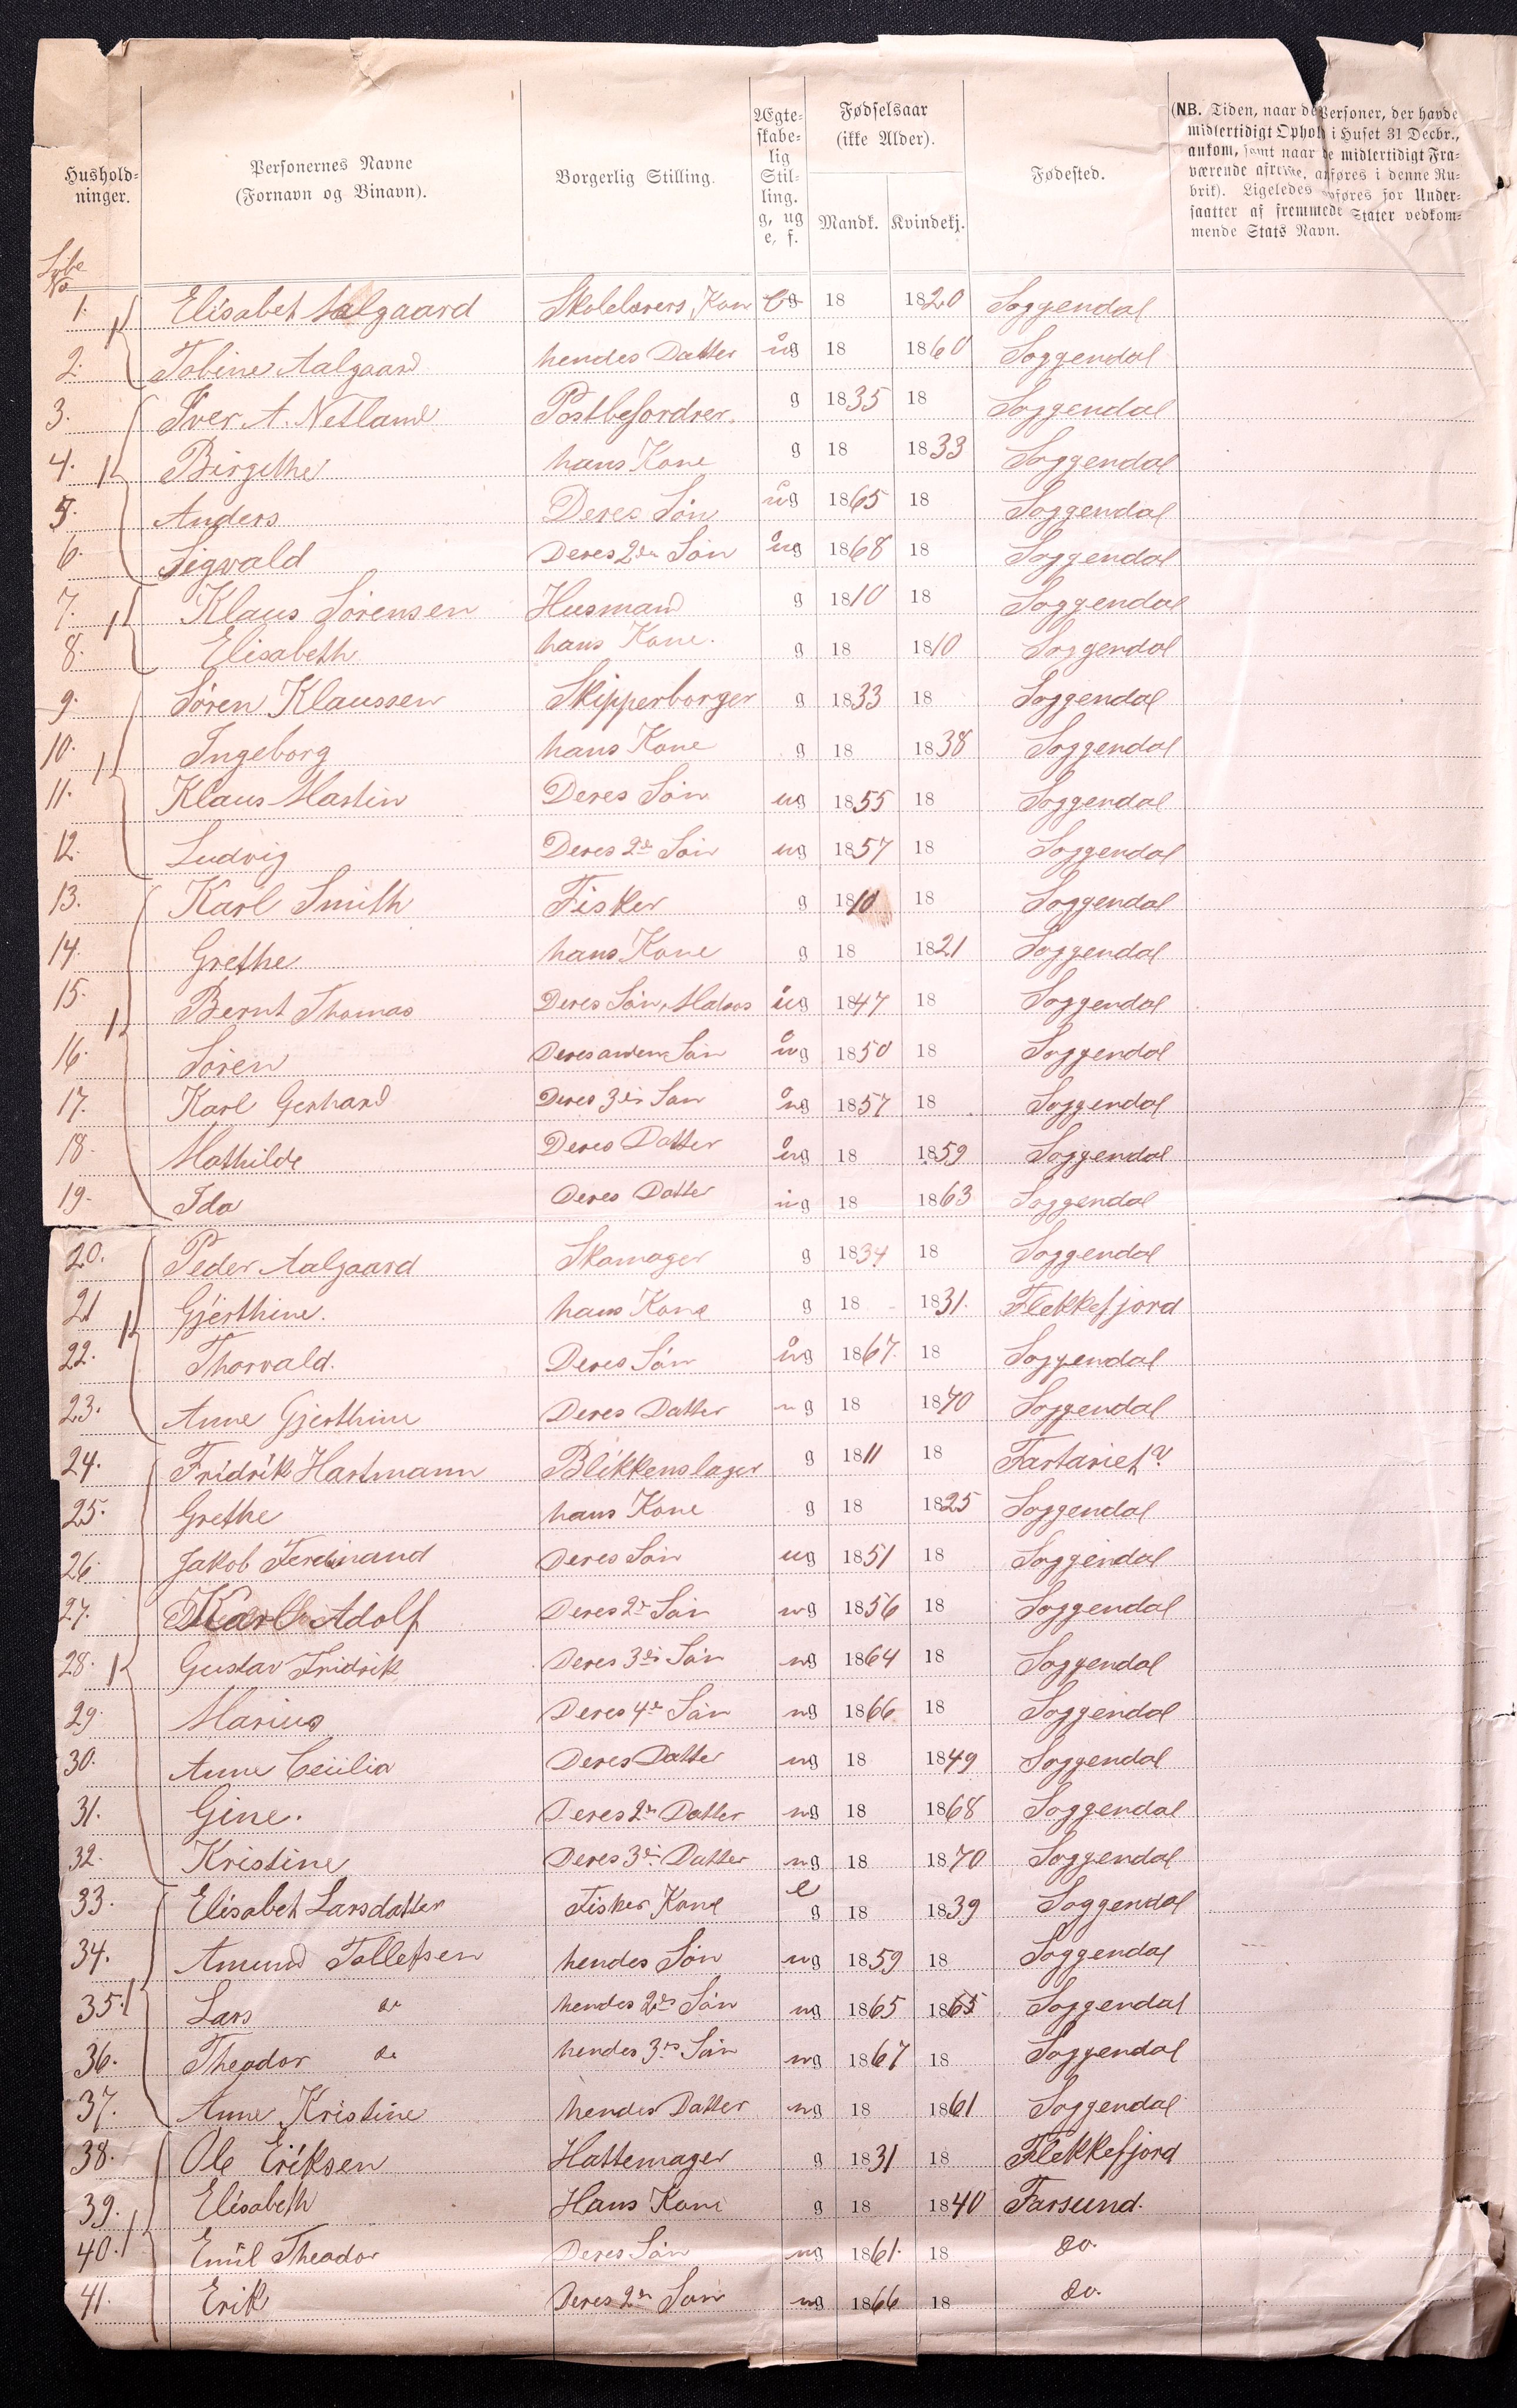 Hushold-
ninger.
Personernes Navne
(Fornavn og Binavn).
Borgerlig Stilling.
Ægte-
skabe-
lig
Stil-
ling.
g, ug
e, f.
Fødselsaar
(ikke Alder).
Mandk. Kvindekj.
Fødested.
(NB. Tiden, naar de Personer, der havde
midlertidigt Ophold i Huset 31 Decbr.,
ankom, samt naar de midlertidigt Fra-
værende afreiste, anføres i denne Ru-
brik). Ligeledes anføres for Under-
saatter af fremmede Stater vedkom-
mende Stats Navn.
Løbe
No
1. 1 Elisabet Aalgaard Skolelærers Kone e g 18 1820 Soggendal
2. Tobine Aalgaard hendes Datter ug 18 1860 Soggendal
3. Iver A. Netland Postbefordrer. g 1835 18 Soggendal
4. 1 Birgithe hans Kone g 18 1833 Soggendal
5. Anders Deres Søn ug 1865 18 Soggendal
6. Sigvald Deres 2den Søn ug 1868 18 Soggendal
7. 1 Klaus Sørensen Husmand g 1810 18 Soggendal
8. Elisabeth hans Kone. g 18 1810 Soggendal
9. Søren Klaussen Skipperborger g 1833 18 Soggendal
10. 1 Ingeborg hans Kone g 18 1838 Soggendal
11. Klaus Martin Deres Søn ug 1855 18 Soggendal
12. Ludvig Deres 2de Søn ug 1857 18 Soggendal
13. Karl Smith Fisker g 1810 18 Soggendal
14. Grethe hans Kone g 18 1821 Soggendal
15. 1 Bernt Thomas Deres Søn, Matros ug 1847 18 Soggendal
16. Søren Deres anden Søn ug 1850 18 Soggendal
17. Karl Gerhard Deres 3die Søn ug 1857 18 Soggendal
18. Mathilde Deres Datter ug 18 1859 Soggendal
19. Ida Deres Datter ug 18 1863 Soggendal
20. Peder Aalgaard Skomager g 1834 18 Soggendal
21 1 Gjerthine. hans Kone g 18 1831. Flekkefjord
22. Thorvald. Deres Søn ug 1867. 18 Soggendal
23. Anne Gjerthine Deres Datter ug 18 1870 Soggendal
24. Fridrik Hartmann Blikkenslager g 1811 18 Tartariet?
25. Grethe hans Kone g 18 1825 Soggendal
26. Jakob Ferdinand Deres Søn ug 1851 18 Soggendal
27. Karl Adolf Deres 2de Søn ug 1856 18 Soggendal
28. 1 Gustav Fridrik Deres 3die Søn ug 1864 18 Soggendal
29. Marius Deres 4de Søn ug 1866 18 Soggendal
30. Anne Cecilia Deres Datter ug 18 1849 Soggendal
31. Gine. Deres 2den Datter ug 18 1868 Soggendal
32. Kristine Deres 3die Datter ug 18 1870 Soggendal
33. Elisabet Larsdatter Fisker Kone e g 18 1839 Soggendal
34. Amund Tollefsen hendes Søn ug 1859 18 Soggendal
35. 1 Lars do hendes 2den Søn ug 1865 1865 Soggendal
36. Theodor do hendes 3die Søn ug 1867 18 Soggendal
37. Anne Kristine hendes Datter ug 18 1861 Soggendal
38. Ole Eriksen Hattemager g 1831 18 Flekkefjord
39. Elisabeth Hans Kone g 18 1840 Farsund.
40. 1 Emil Theodor Deres Søn ug 1861. 18 do.
41. Erik Deres 2den Søn ug 1866 18 do.